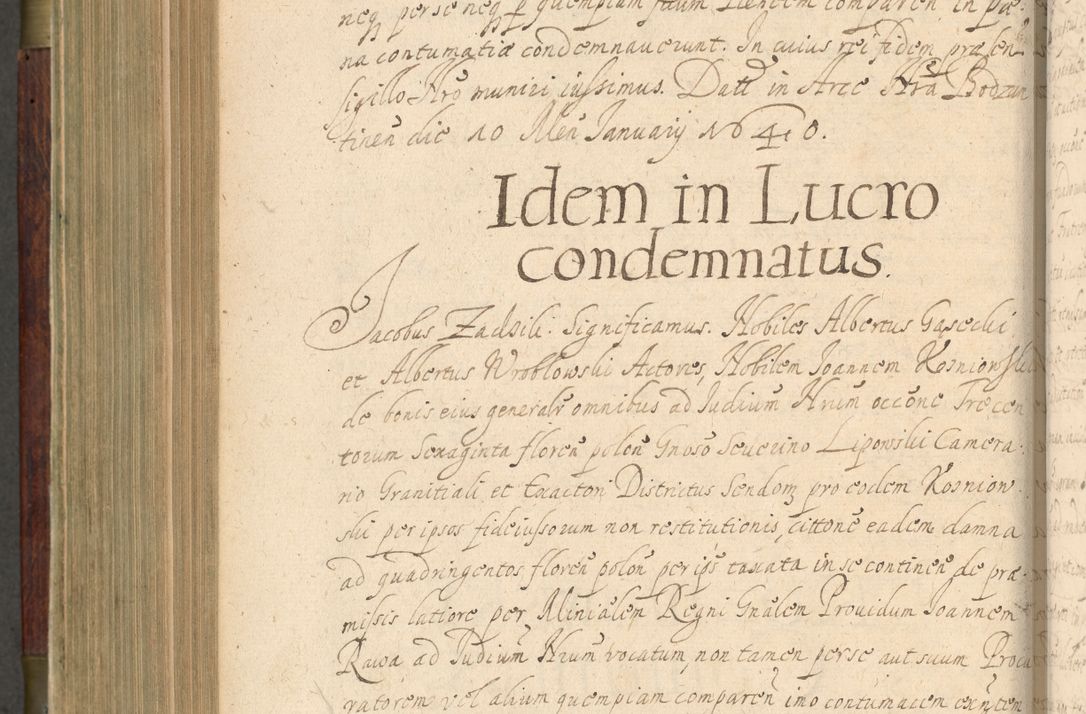 neq per se neq p quempiam suum comparen in pæ:
na contumatiæ condemnauerunt. In cuius rei fidem præsen
sigillo Nro muniri iussimus. Datt in Arce Nra Bodzan
tinen die 10 Men January 1640.
Idem in Lucro
condemnatus.
Jacobus Zadzik. Significamus. Nobiles Albertus Gąsecki
et Albertus Wroblowski Actores, Nobilem Joannem Kosniowski
de bonis eius generalr omnibus ad Judium Nrum occõne Trecen
torum Sexaginta floren polon Gnoso Seuerino Liponski Camera:
rio Granitiali et Exactori Districtus Sendom pro eodem Kosniow
ski per ipsos fideiussorum non restitutionis, cittone eadem damna
ad quadringentos floren polon per ips taxata in se continen de præ:
missis latiore per Minialem Regni Gnalem Prouidum Joannem
Rawa ad Judium Nrum vocatum non tamen per se aut suum Procu
ratorem vel alium quempiam comparen imo contumacem exntem